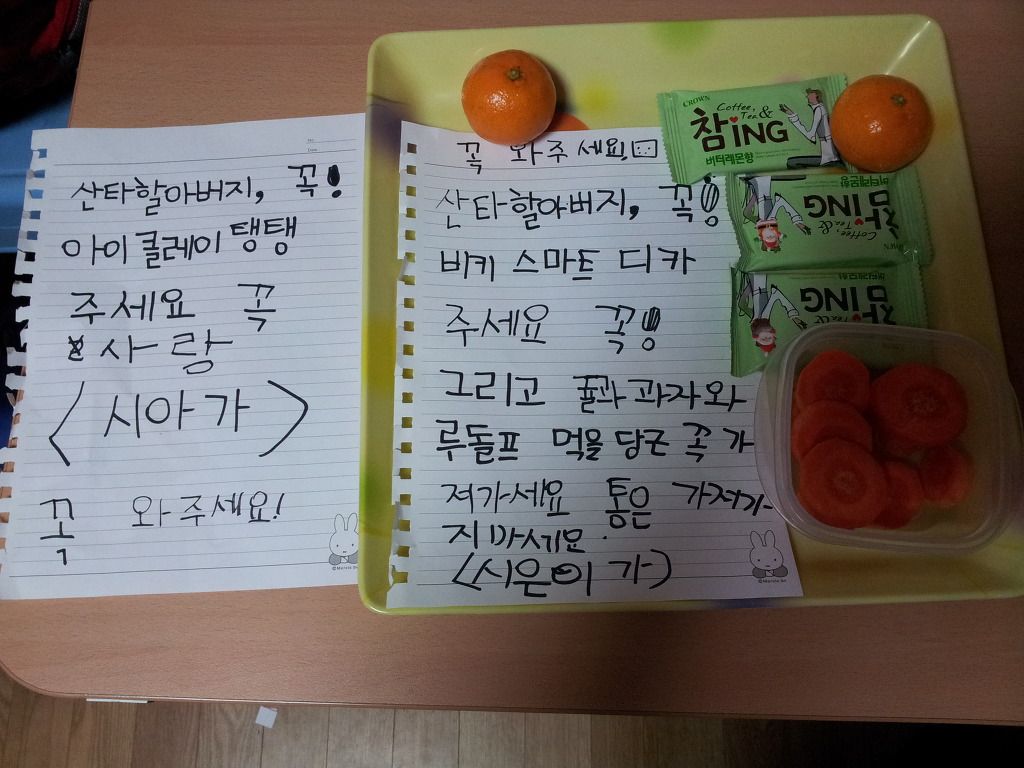 산타할아버지, 꼭!
아이클레이 탱탱
주세요 꼭
사랑
〈시아가〉
꼭 와주세요!
꼭 와주세요!
산타할아버지, 꼭!
비키 스마트 디카
주세요 꼭!
그리고 귤과 과자와
루돌프 먹을 당근 꼭 가
져가세요 통은 가져가
지 마세요.
〈시은이 가〉
CROWN
Coffee, Tea &
참ING
버터레몬향
Coffee, Tea &
참ING
CROWN
버터레몬향
Coffee, Tea &
참ING